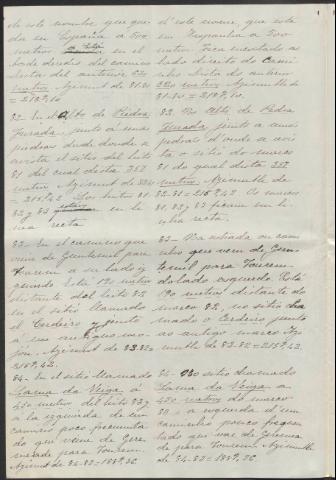 de este nombre que que-
da en España a 500
metros en el
lado derecho del camino
dista del anterior 220
metros Azimut de 81.80
= 218º,10
82. En el Alto de Piedra
Furada, junto á unas
piedras desde donde se
avista el sitio del hito
81 del cual dista 252
metros Azimut de 82.81
= 215º,42. Los hitos 81,
82 y 83 estan en li-
nea recta
83. En el camino que
viene de Guntemil para
Tourem a su lado iz-
quierdo. Está 190 metros
distante del hito 82
en el sitio llamado
el Cordeiro y junto
á un antiguo mo-
jon. Azimut de 83.82=
215º,42.
84. En el sitio llamado
Lama da Veiga á
420 metros del hito 83 y
a la izquierda de un
camino poco frecuenta-
do que viene de Gere-
meade para Tourem.
Azimut de 84.83=188º,26
d'este nome, que está
em Hespanha a 500
metros. Fica encostado ao
lado direito do cami-
nho. Dista do anterior
220 metros Azimuth de
81.80 = 218º,10
82. No Alto de Pedra
Furada, junto a umas
pedras d'onde se avis-
ta o sitio do marco
81 do qual dista 252
metros Azimuth de
82.81=215º,42. Os marcos
81, 82 y 83 ficam em li-
nha recta.
83. Na estrada ou cami-
nho que vem de Gun-
temil para Tourem
do lado esquerdo. Está
190 metros distante do
marco 82, no sitio cha-
mado o Cordeiro junto
ao antigo marco. Azi-
muth de 83.82=215º,42.
84. No sitio chamado
Lama da Veiga a
420 metros do marco
83 e a esquerda d'um
caminho pouco frequen-
tado que vae de Geremea-
de para Tourem. Azimuth
de 84.83=188º,26